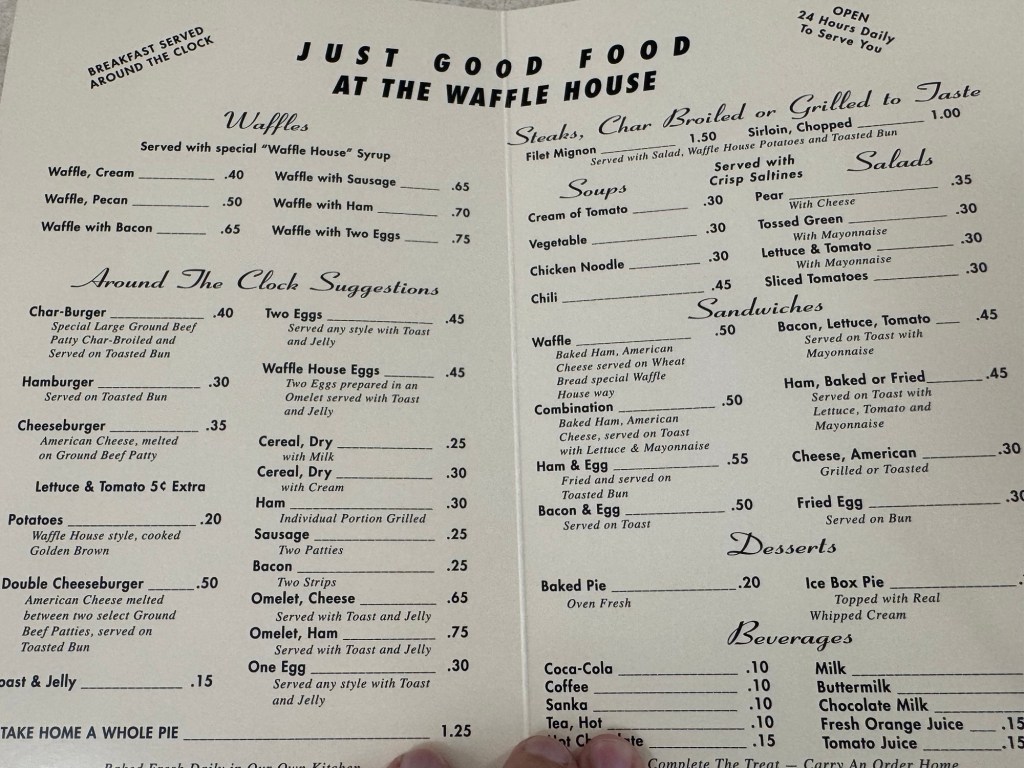 BREAKFAST SERVED
AROUND THE CLOCK
JUST GOOD FOOD
AT THE WAFFLE HOUSE
OPEN
24 Hours Daily
To Serve You
Waffles
Served with special "Waffle House" Syrup
Waffle, Cream .40
Waffle, Pecan .50
Waffle with Bacon .65
Waffle with Sausage .65
Waffle with Ham .70
Waffle with Two Eggs .75
Around The Clock Suggestions
Char-Burger .40
Special Large Ground Beef
Patty Char-Broiled and
Served on Toasted Bun
Hamburger .30
Served on Toasted Bun
Cheeseburger .35
American Cheese, melted
on Ground Beef Patty
Lettuce & Tomato 5¢ Extra
Potatoes .20
Waffle House style, cooked
Golden Brown
Double Cheeseburger .50
American Cheese melted
between two select Ground
Beef Patties, served on
Toasted Bun
oast & Jelly .15
Two Eggs .45
Served any style with Toast
and Jelly
Waffle House Eggs .45
Two Eggs prepared in an
Omelet served with Toast
and Jelly
Cereal, Dry .25
with Milk
Cereal, Dry .30
with Cream
Ham .30
Individual Portion Grilled
Sausage .25
Two Patties
Bacon .25
Two Strips
Omelet, Cheese .65
Served with Toast and Jelly
Omelet, Ham .75
Served with Toast and Jelly
One Egg .30
Served any style with Toast
and Jelly
TAKE HOME A WHOLE PIE 1.25
Baked Fresh Daily in Our Own Kitchen
Steaks, Char Broiled or Grilled to Taste
Filet Mignon 1.50 Sirloin, Chopped 1.00
Served with Salad, Waffle House Potatoes and Toasted Bun
Soups
Served with
Crisp Saltines
Cream of Tomato .30
Vegetable .30
Chicken Noodle .30
Chili .45
Salads
Pear .35
With Cheese
Tossed Green .30
With Mayonnaise
Lettuce & Tomato .30
With Mayonnaise
Sliced Tomatoes .30
Sandwiches
Waffle .50
Baked Ham, American
Cheese served on Wheat
Bread special Waffle
House way
Combination .50
Baked Ham, American
Cheese, served on Toast
with Lettuce & Mayonnaise
Ham & Egg .55
Fried and served on
Toasted Bun
Bacon & Egg .50
Served on Toast
Bacon, Lettuce, Tomato .45
Served on Toast with
Mayonnaise
Ham, Baked or Fried .45
Served on Toast with
Lettuce, Tomato and
Mayonnaise
Cheese, American .30
Grilled or Toasted
Fried Egg .30
Served on Bun
Desserts
Baked Pie .20
Oven Fresh
Ice Box Pie
Topped with Real
Whipped Cream
Beverages
Coca-Cola .10
Coffee .10
Sanka .10
Tea, Hot .10
.15
Milk
Buttermilk
Chocolate Milk
Fresh Orange Juice .15
Tomato Juice .15
Complete The Treat — Carry An Order Home